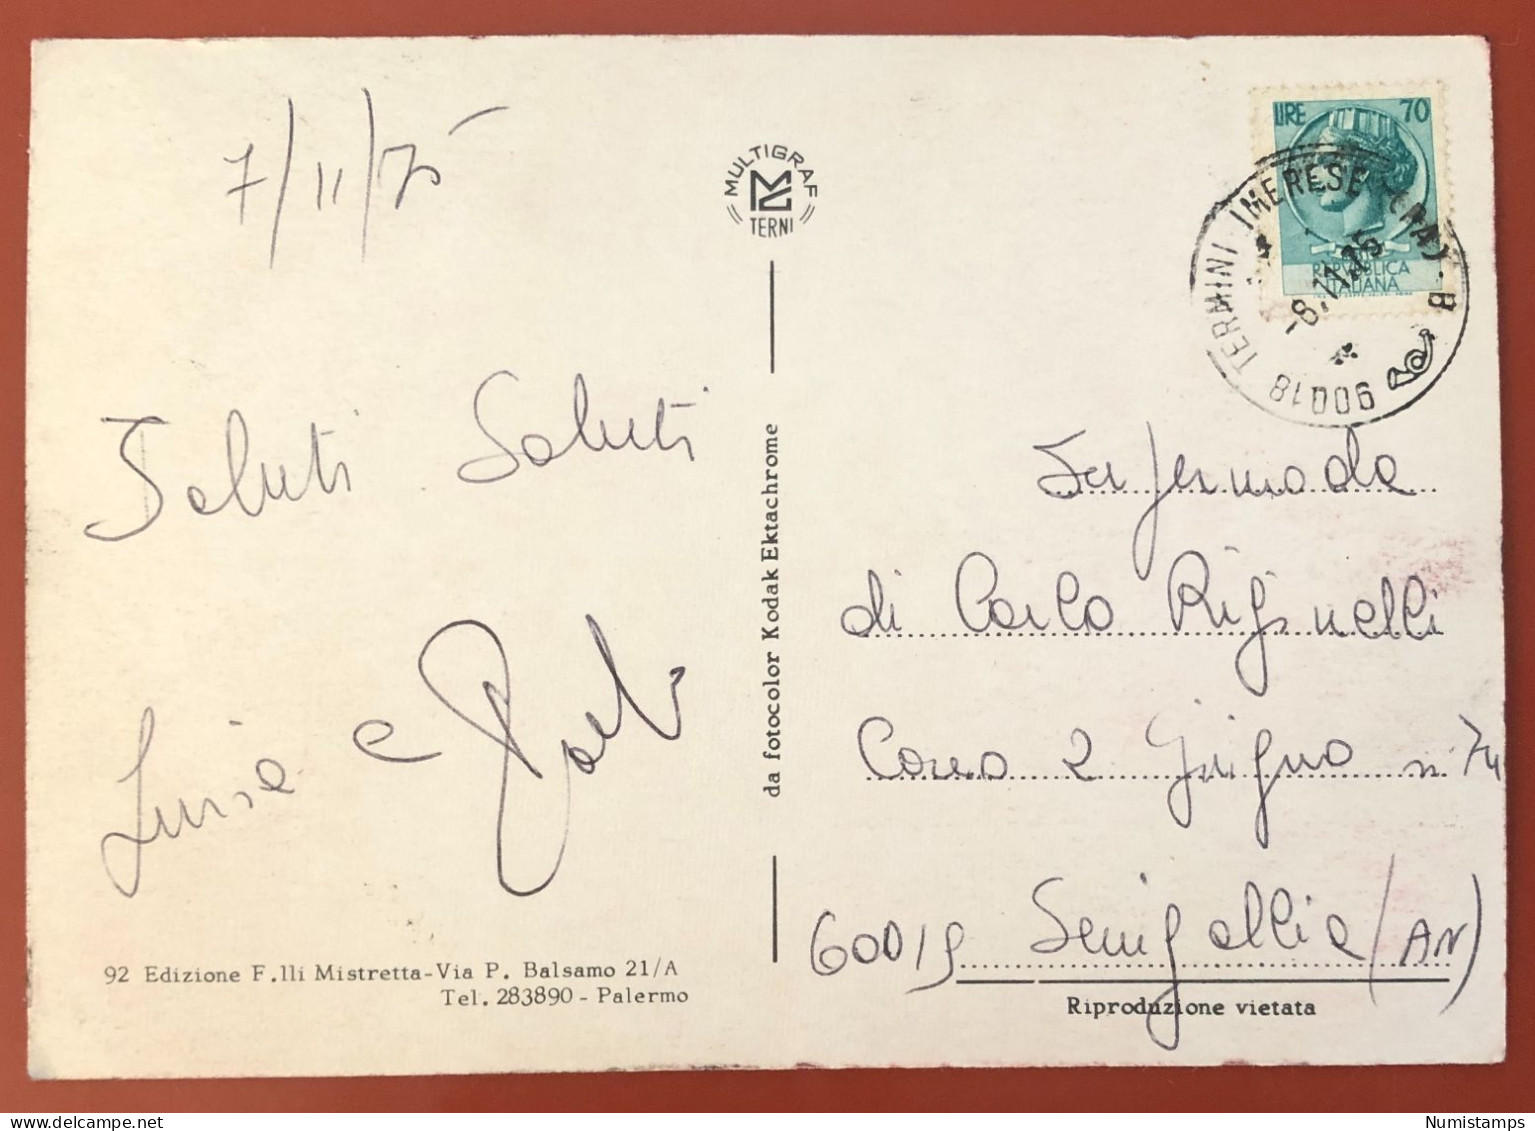 7/11/75
MULTIGRAF
TERNI
LIRE 70
REPUBBLICA
ITALIANA
90018 TERMINI IMERESE (PA) - B
-8.11.75
Saluti Saluti
Luisa e
da fotocolor Kodak Ektachrome
di Carlo
Corso 2 Giugno n 74
60019 Senigallia (AN)
92 Edizione F.lli Mistretta-Via P. Balsamo 21/A
Tel. 283890 - Palermo
Riproduzione vietata
Numistamps